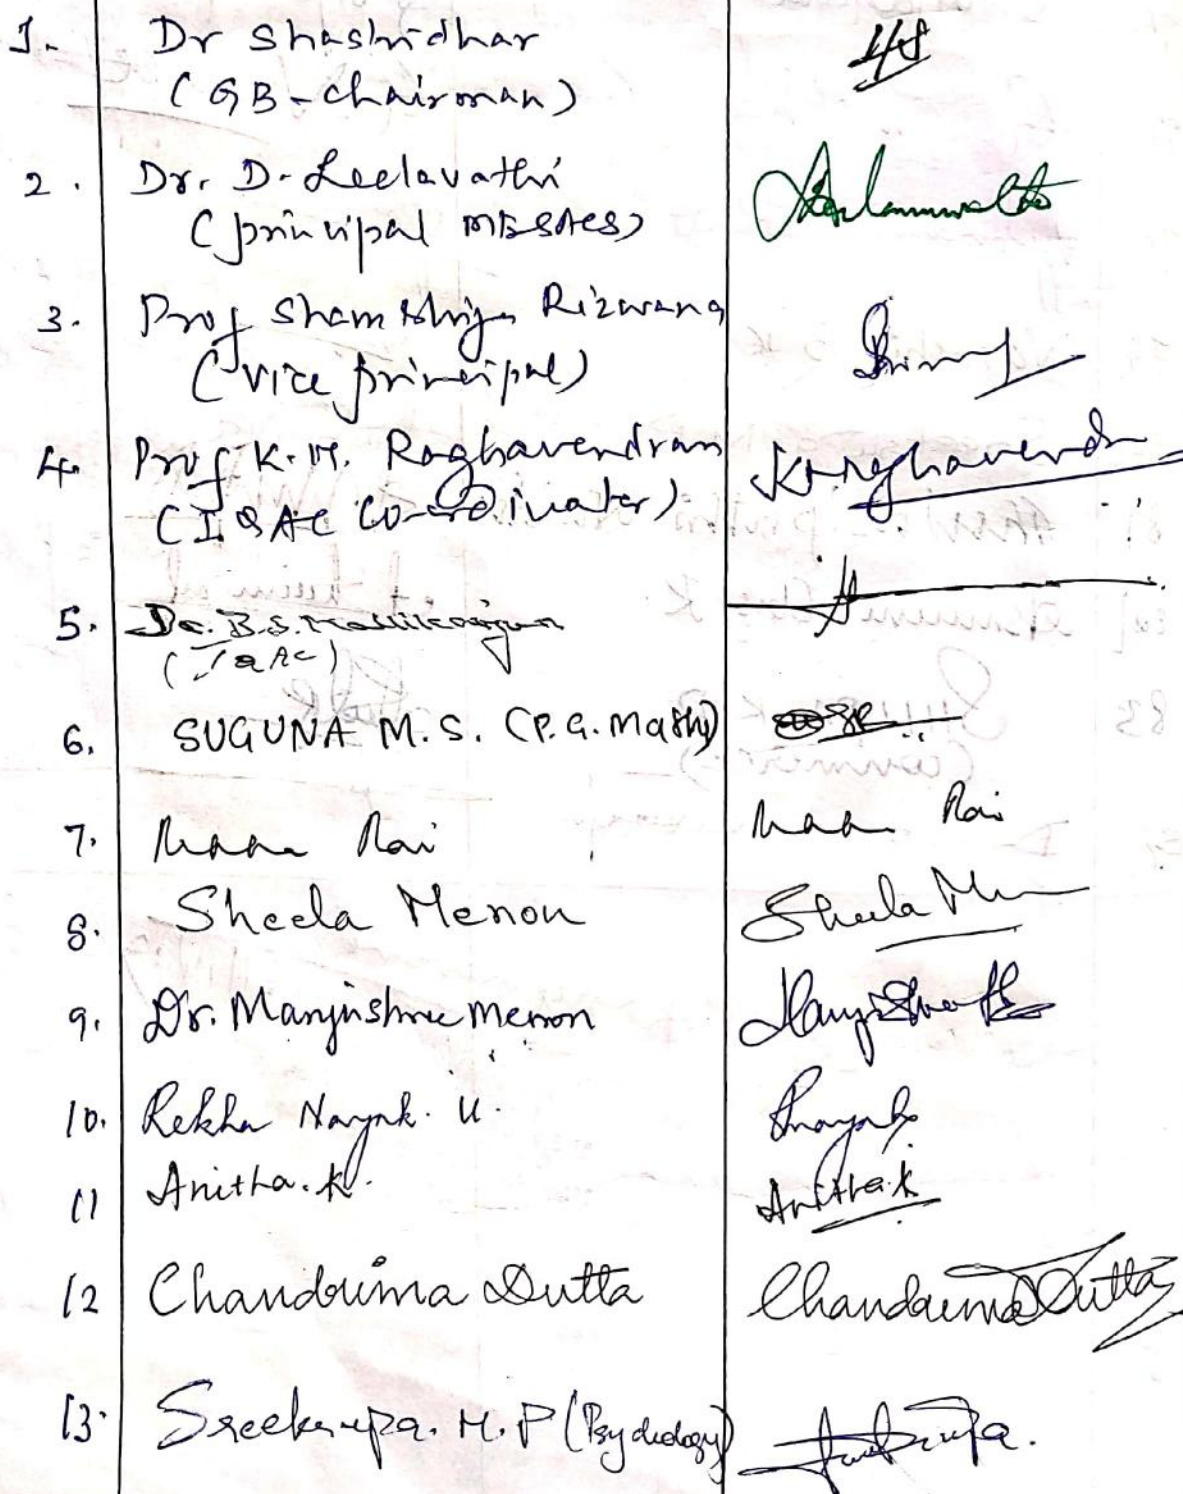 1. Dr Shashidhar
(GB-chairman)
2. Dr. D. Leelavathi
(principal MESACS)
3. Prof Rizwana
(vice principal)
4. Prof K.M. Raghavendran K Raghavendr
(IQAC Co-ordinator)
5. Dr. B.S. Mallikarjun
(IQAC)
6. SUGUNA M.S. (P.G. Maths)
7. Rai Rai
8. Sheela Menon Sheela
9. Dr. Manjushree Menon
10. Rekha Nayak. U.
11 Anitha.K. Anitha.k
12 Chandrima Dutta Chandrima Dutta
13. Sreekrupa. M.P (Psychology)